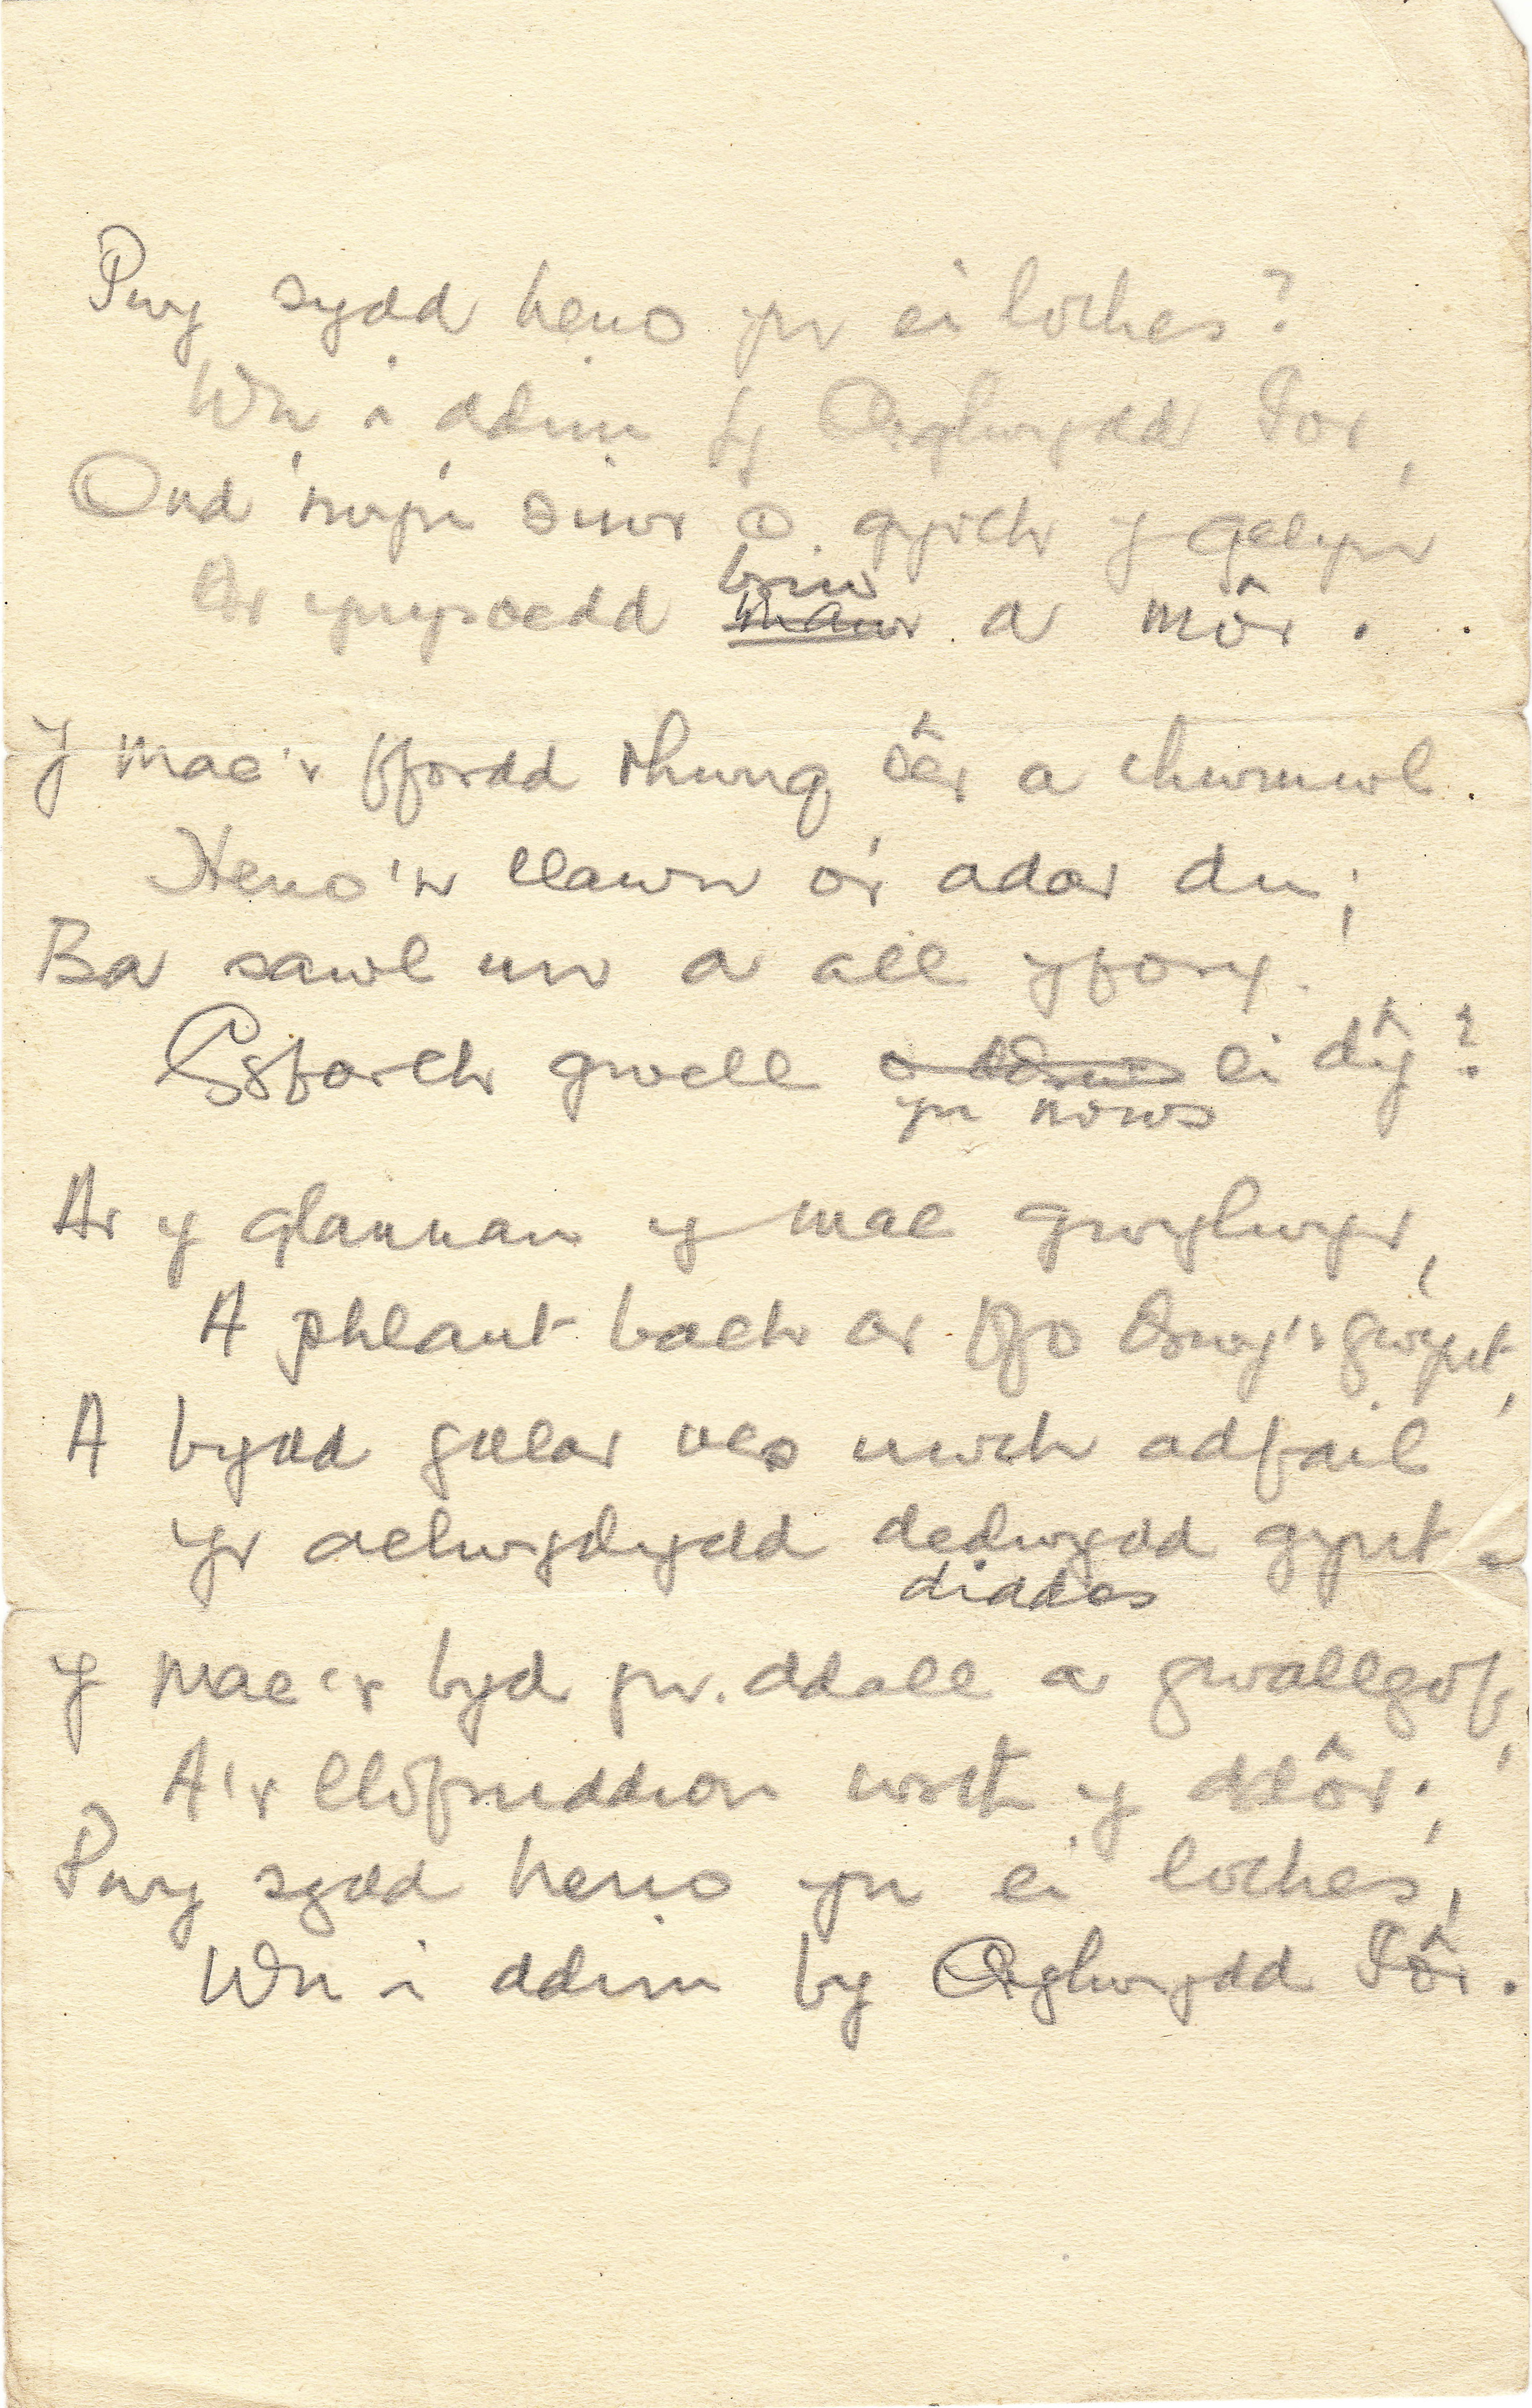 Pwy sydd heno yn ei loches?
Wn i ddim fy Arglwydd Iôr,
Ond 'rwy'n siwr o gyrch y gelyn
Ar ynysoedd briw
mawr a môr.
Y mae'r ffordd rhwng sêr a chwmwl
Heno'n llawn o'r adar du;
Ba sawl un a all yfory
Gyfarch gwell ei dŷ?
yn nrws
Ar y glannau y mae gwylwyr,
A phlant bach ar ffo drwy'r gwynt,
A bydd galar uwch adfail
Yr aelwydydd dedwydd gynt.
diddos
Y mae'r byd yn ddall a gwallgof,
A'r llofruddion wrth y ddôr;
Pwy sydd heno yn ei loches,
Wn i ddim by Arglwydd Iôr.